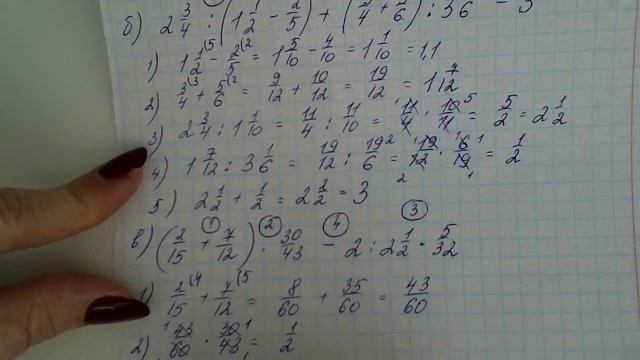 б) 2 3/4 : (1 1/2 - 2/5) + (3/4 + 5/6) : 3 1/6 = 3
1) 1 1/2 - 2/5 = 1 5/10 - 4/10 = 1 1/10 = 1,1
2) 3/4 + 5/6 = 9/12 + 10/12 = 19/12 = 1 7/12
3) 2 3/4 : 1 1/10 = 11/4 : 11/10 = 11/4 · 10/11 = 5/2 = 2 1/2
4) 1 7/12 : 3 1/6 = 19/12 : 19/6 = 19/12 · 6/19 = 1/2
5) 2 1/2 + 1/2 = 2 2/2 = 3
в) (2/15 + 7/12) · 30/43 - 2 : 2 1/2 · 5/32
1) 2/15 + 7/12 = 8/60 + 35/60 = 43/60
2) 43/60 · 30/43 = 1/2